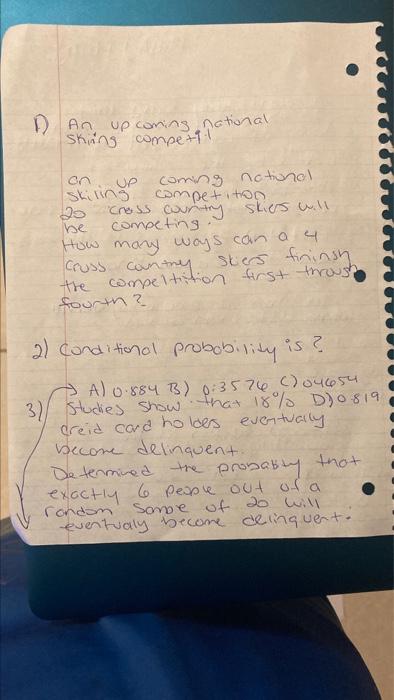 1) An up coming national
Skiing competit
on up coming national
skiling competiton
20 cross country skiers will
be competing.
How many ways can a 4
cross contrey skiers fininsh
the compeltition first through
fourth?
2) Conditional probobility is?
A) 0.884 B) 0.3576 C) 04654
3) Studies show that 18% D) 0.819
creid card holbes eventualy
become delinquent.
Determined the probabty that
exactly 6 people out of a
random sampe of 20 will
eventualy become delinquent.